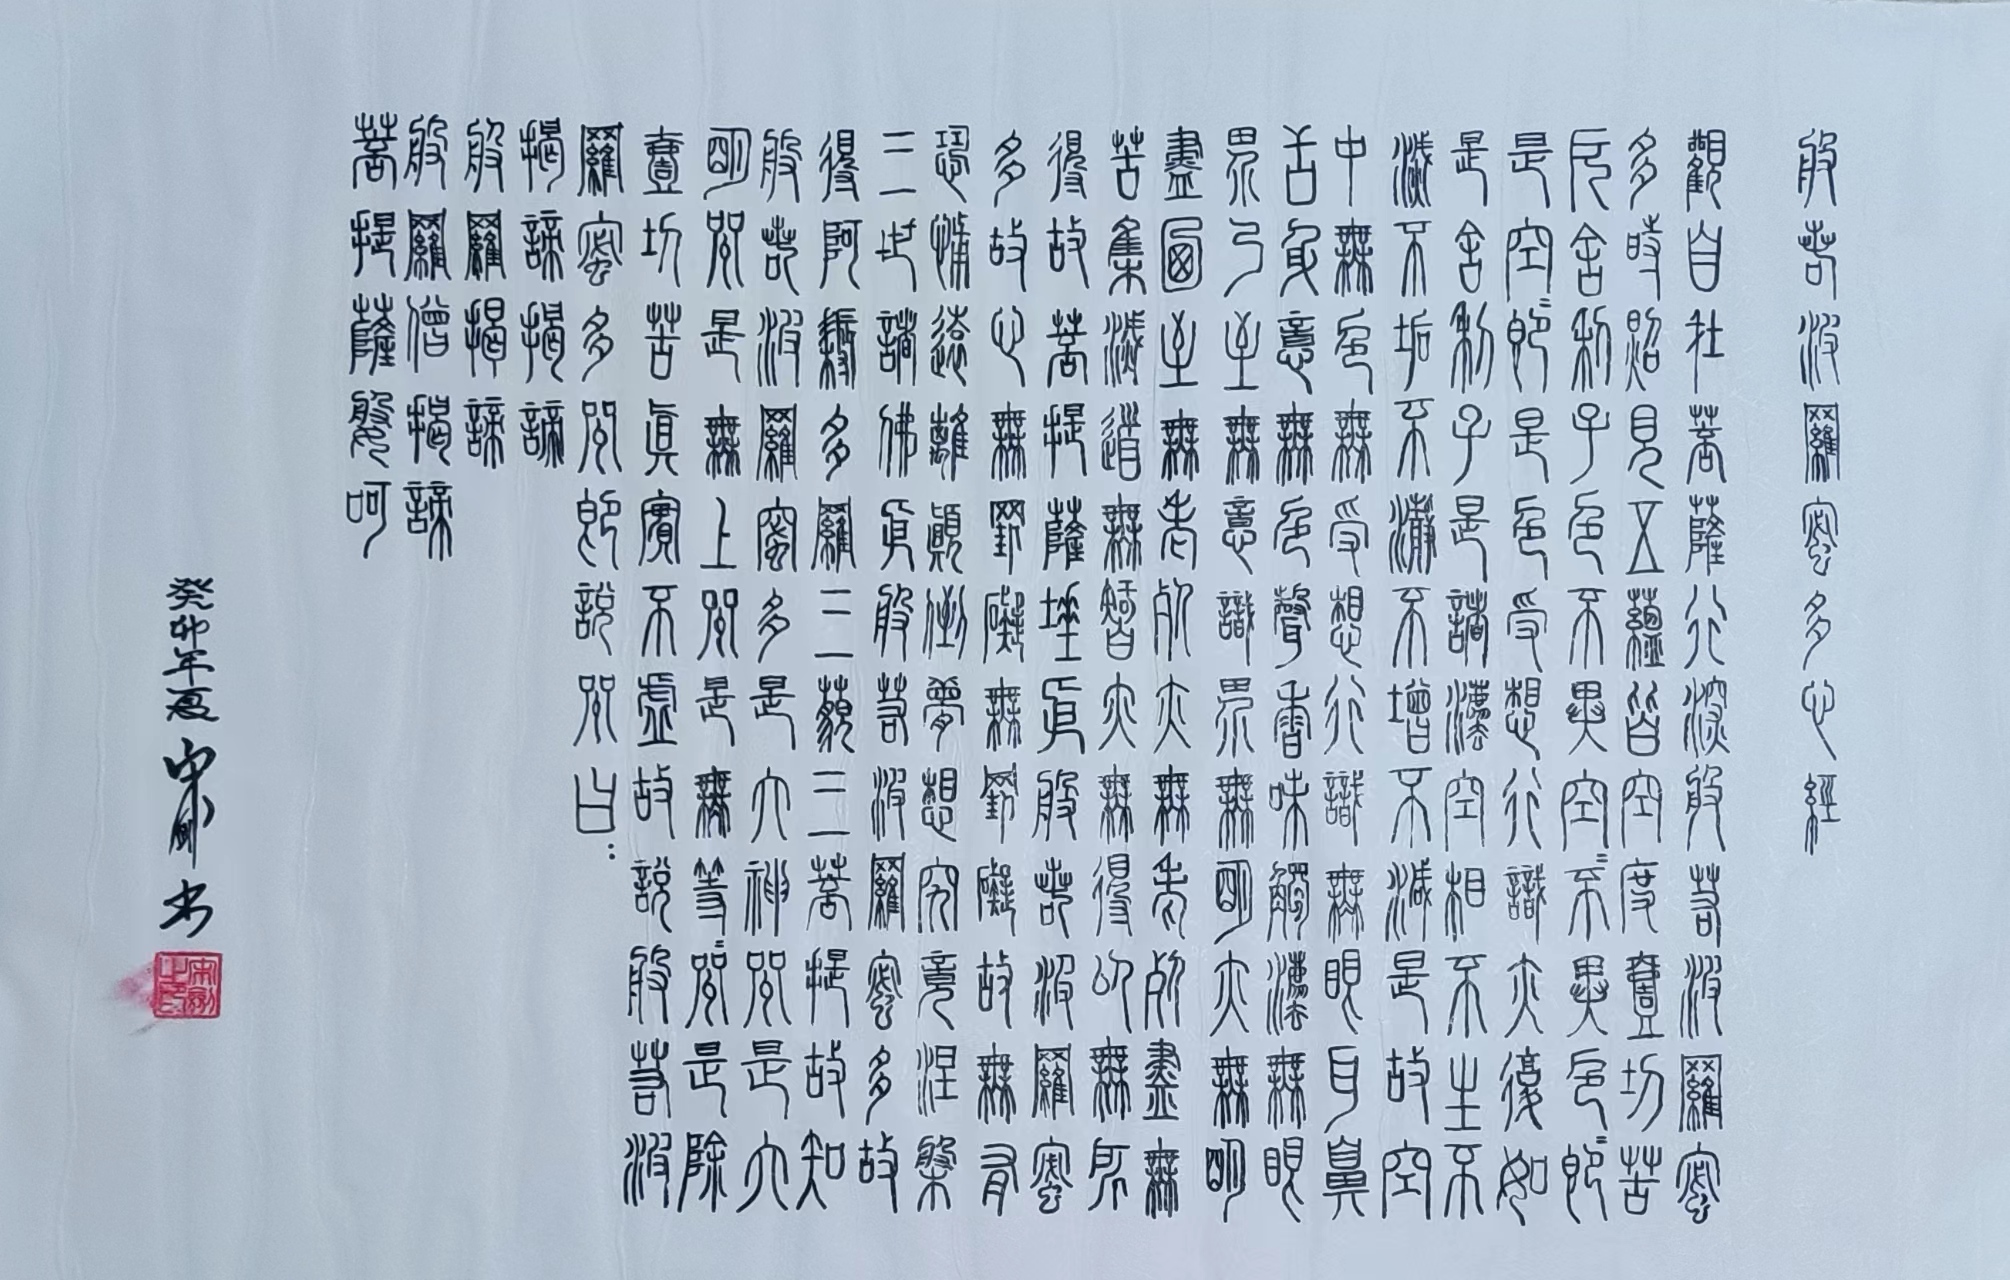 般若波羅蜜多心經
觀自在菩薩行深般若波羅蜜
多時照見五蘊皆空度壹切苦
厄舍利子色不異空〻不異色〻即
是空〻即是色受想行識亦復如
是舍利子是諸法空相不生不
滅不垢不淨不增不減是故空
中無色無受想行識無眼耳鼻
舌身意無色聲香味觸法無眼
界乃至無意識界無明亦無明
盡乃至無老死亦無老死盡無
苦集滅道無智亦無得以無所
得故菩提薩埵依般若波羅蜜
多故心無罣礙無罣礙故無有
恐怖遠離顛倒夢想究竟涅槃
三世諸佛依般若波羅蜜多故
得阿耨多羅三藐三菩提故知
般若波羅蜜多是大神咒是大
明咒是無上咒是無等〻咒是除
壹切苦真實不虛故說般若波
羅蜜多咒即說咒曰：
揭諦揭諦
般羅揭諦
般羅僧揭諦
菩提薩媻呵
癸卯年夏 宋 書